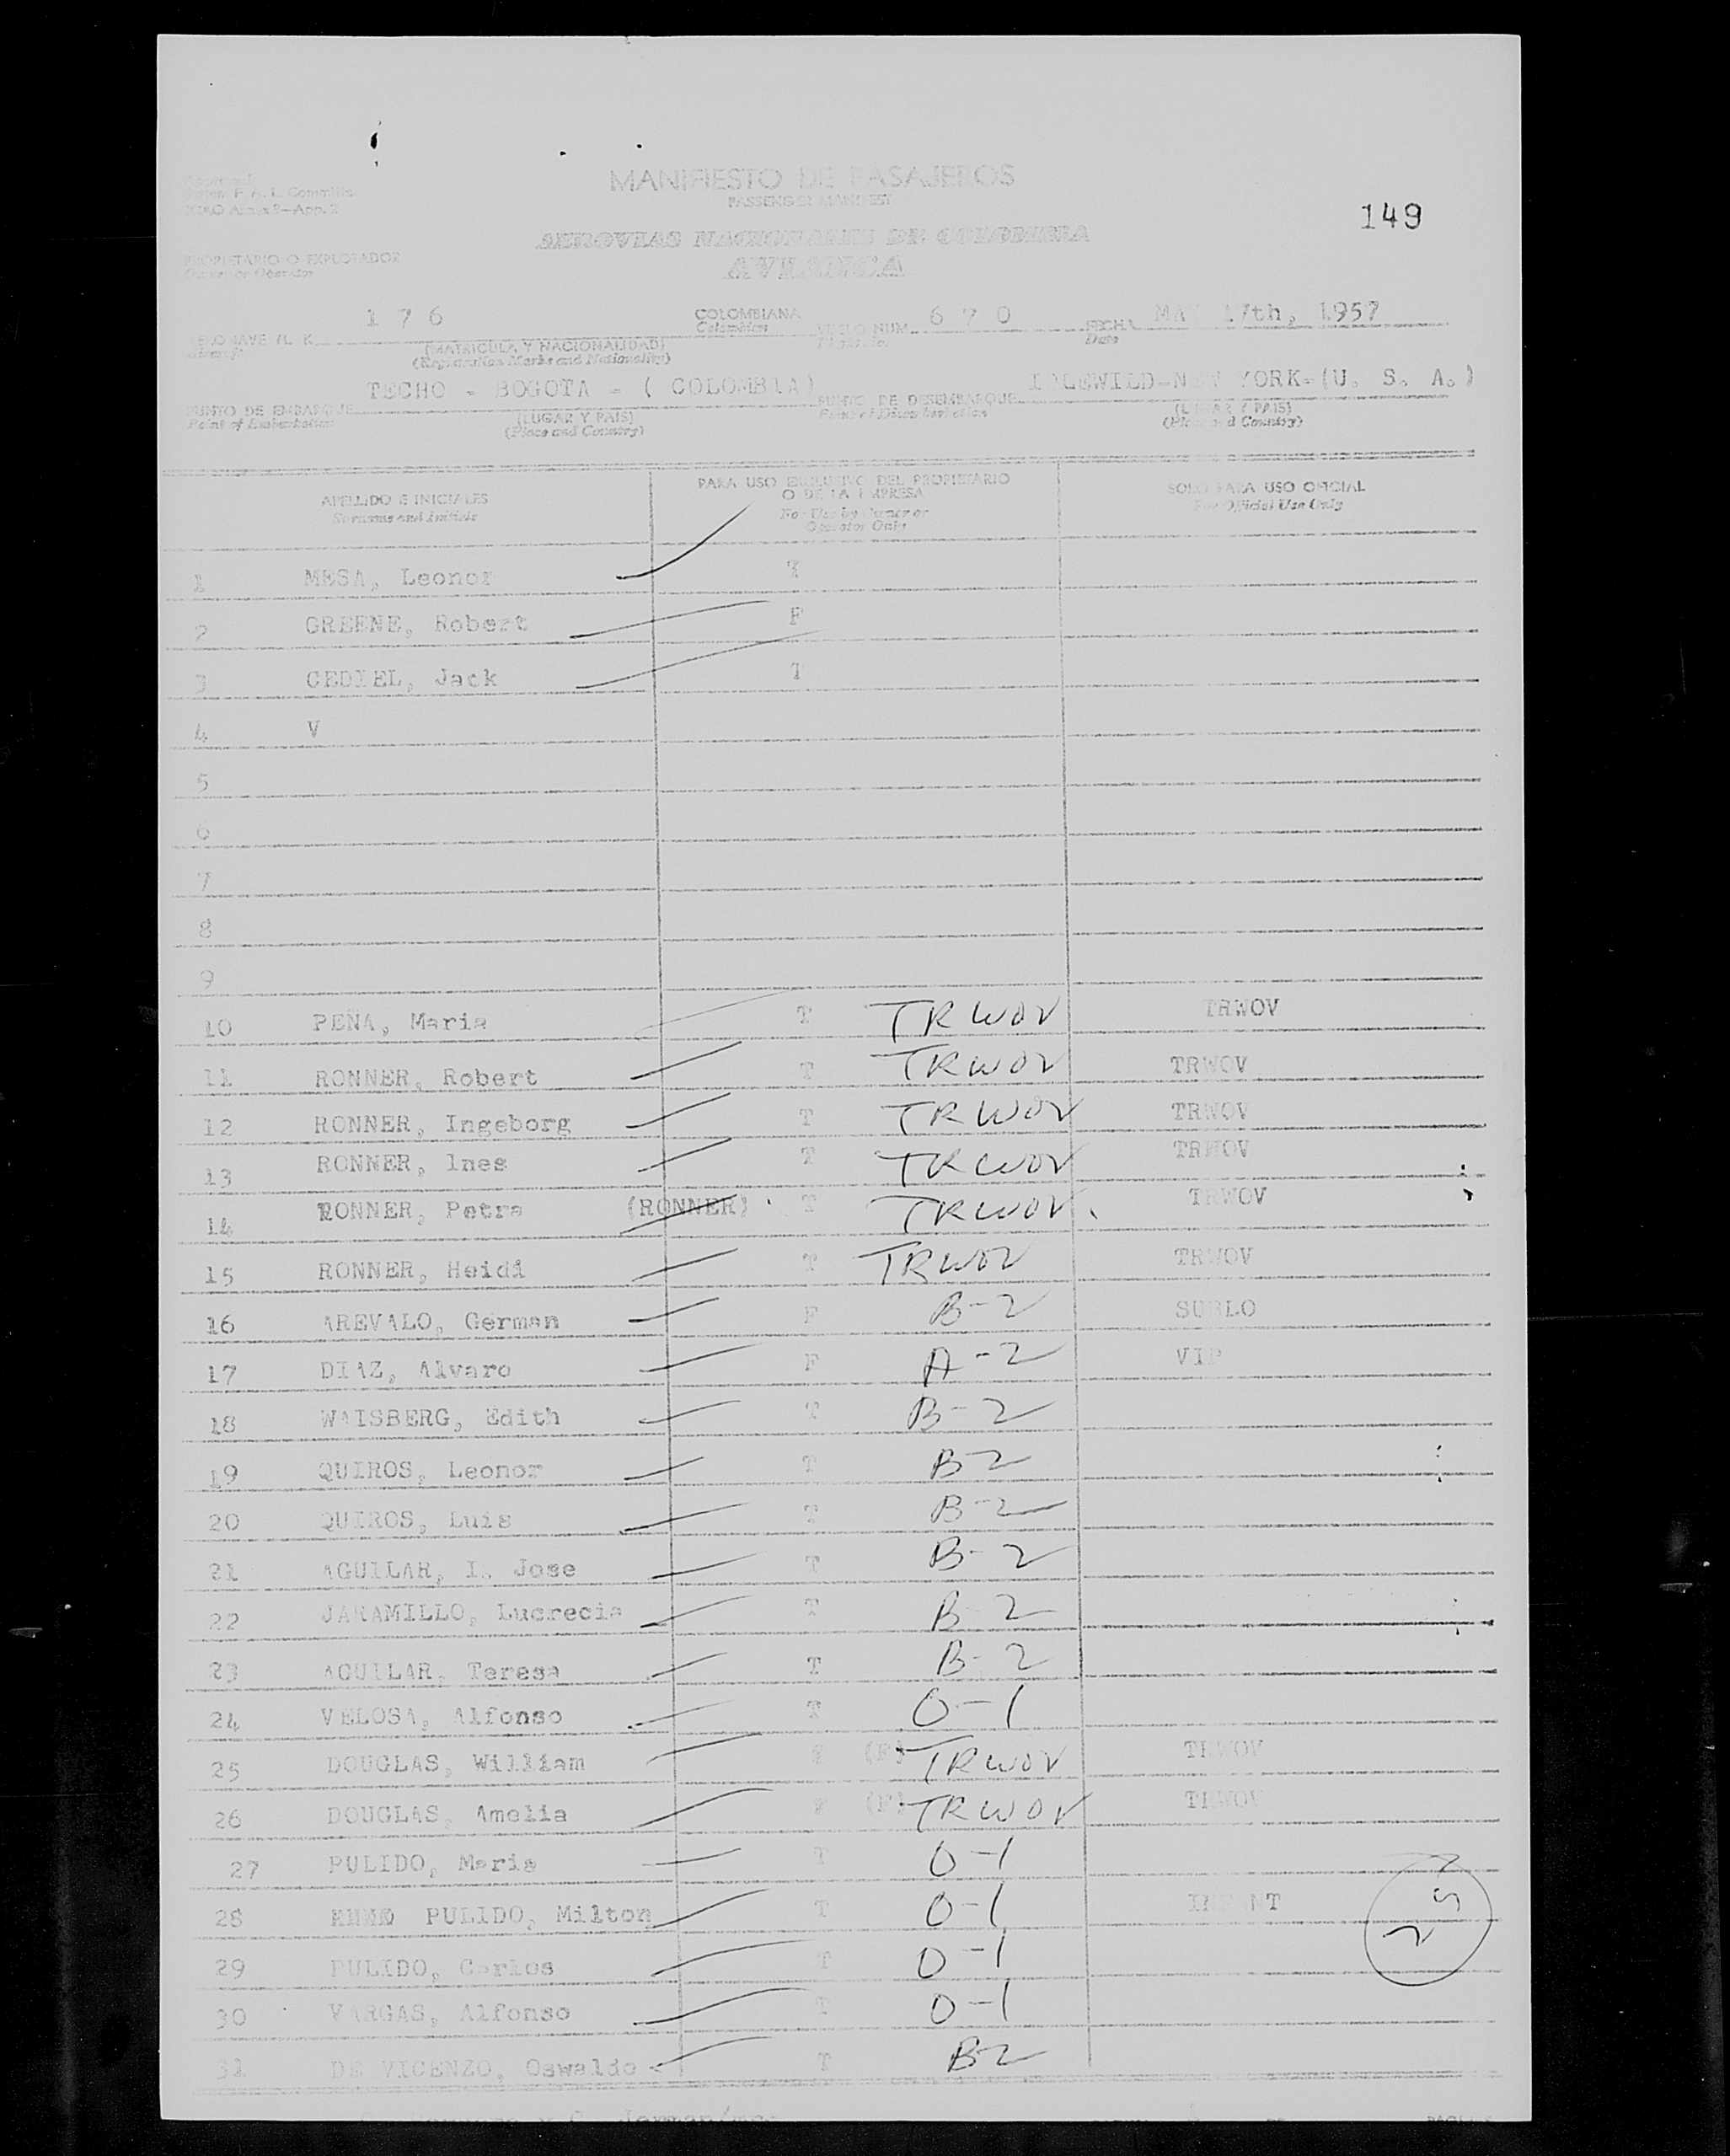 MANIFIESTO DE PASAJEROS
PASSENGER MANIFEST
149
AEROVIAS NACIONALES DE COLOMBIA
PROPIETARIO O EXPLOTADOR
Owner or Operator
AVIANCA
176 COLOMBIANA 670 MAY 17th, 1957
Colombian NUM. FECHA
Date
(MATRICULA Y NACIONALIDAD)
(Registration Marks and Nationality)
TECHO - BOGOTA - ( COLOMBIA) IDLEWILD-NEW YORK-(U. S. A.)
PUNTO DE EMBARQUE (LUGAR Y PAIS) PUNTO DE DESEMBARQUE (LUGAR Y PAIS)
Point of Embarkation (Place and Country) (Place and Country)
APELLIDO E INICIALES PARA USO EXCLUSIVO DEL PROPIETARIO O DE LA EMPRESA SOLO PARA USO OFICIAL
Surname and Initials For Use by Owner or Operator Only For Official Use Only
1 MESA, Leonor T
2 GREENE, Robert F
3 GEDIEL, Jack T
4 V
5
6
7
8
9
10 PEÑA, Maria T TRWOV TRWOV
11 RONNER, Robert T TRWOV TRWOV
12 RONNER, Ingeborg T TRWOV TRWOV
13 RONNER, Ines T TRWOV TRWOV
14 RONNER, Petra (RONNER) T TRWOV TRWOV
15 RONNER, Heidi T TRWOV TRWOV
16 AREVALO, German F B-2 SUBLO
17 DIAZ, Alvaro F A-2 VIP
18 WAISBERG, Edith T B-2
19 QUIROS, Leonor T B2
20 QUIROS, Luis T B-2
21 AGUILAR, I. Jose T B-2
22 JARAMILLO, Lucrecia T B-2
23 AGUILAR, Teresa T B-2
24 VELOSA, Alfonso T O-1
25 DOUGLAS, William (F) TRWOV TRWOV
26 DOUGLAS, Amelia (F) TRWOV TRWOV
27 PULIDO, Maria T O-1
28 PULIDO, Milton T O-1 INFANT
29 PULIDO, Carlos T O-1
30 VARGAS, Alfonso T O-1
31 DE VICENZO, Oswaldo T B2